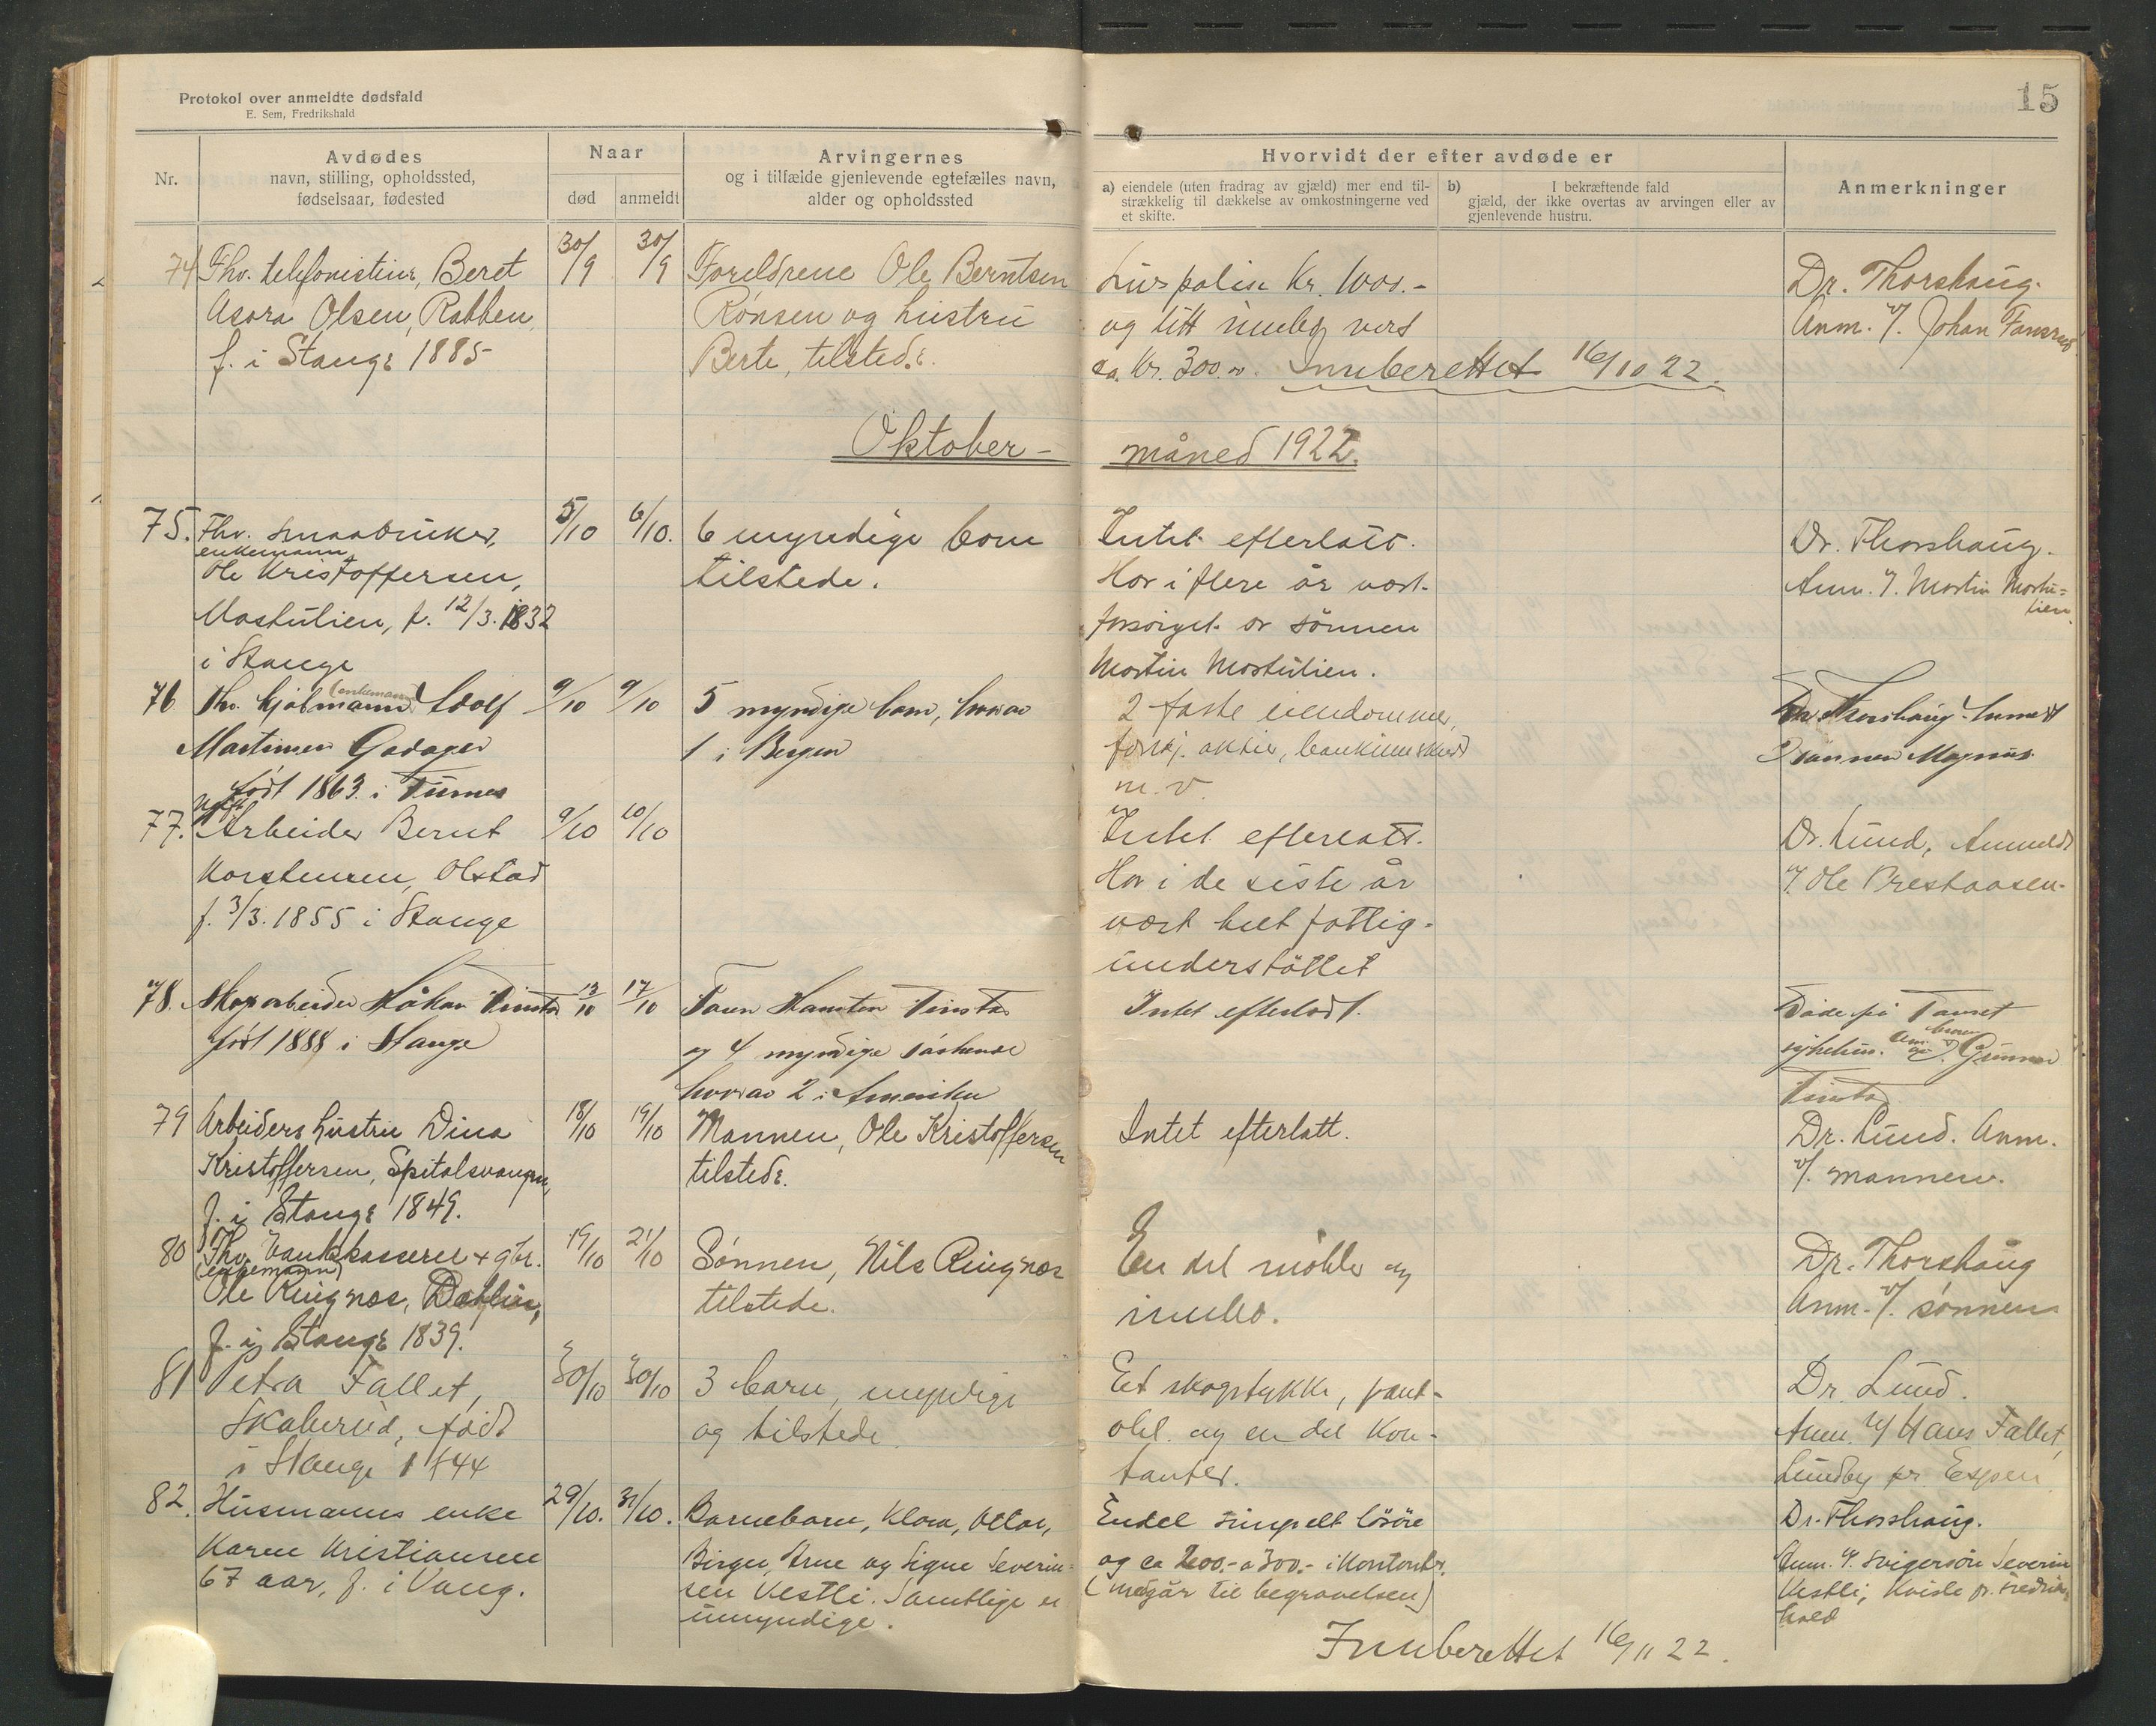 15
Protokol over anmeldte dødsfald
E. Sem, Fredrikshald
Nr.
Avdødes
navn, stilling, opholdssted,
fødselsaar, fødested
Naar
død
anmeldt
Arvingernes
og i tilfælde gjenlevende egtefælles navn,
alder og opholdssted
Hvorvidt der efter avdøde er
a) eiendele (uten fradrag av gjæld) mer end til-
strækkelig til dækkelse av omkostningerne ved
et skifte.
b) I bekræftende fald
gjæld, der ikke overtas av arvingen eller av
gjenlevende hustru.
Anmerkninger
74 Fhv. telefonistinne, Beret
Asora Olsen, Rabben,
f. i Stange 1885
30/9
30/9
Foreldrene Ole Berntsen
Rønsen og hustru
Berte, tilstede.
Livspolise kr. 1000.-
og litt innbo, verd
ca. kr. 300.00. Innberettet 16/10 22.
Dr. Thorshaug.
Anm. v/. Johan
Oktober -
måned 1922.
75. Fhv. smaabruker,
enkemann
Ole Kristoffersen,
Mostulien, f. 12/3. 1832
i Stange
5/10
6/10.
6 myndige barn
tilstede.
Intet efterlatt.
Har i flere år vært
forsørget av sønnen
Martin Mostulien.
Dr. Thorshaug.
Anm. v. Martin Mostu=
lien
76. Fhv. kjøbmann (enkemann) Adolf
Martinsen Gadager
født 1863 i Furnes
9/10
9/10
5 myndige barn, hvorav
1 i Bergen
2 faste eiendommer,
forskj. aktier, bankinnskudd
m. v.
Dr Thorshaug. Anmeldt
v sønnen Magnus.
77. Ugift
Arbeider Bernt
Karstensen, Olstad
f. 3/3. 1855 i Stange
9/10
10/10
Intet efterlatt.
Har i de siste år
vært helt fattig-
understøttet
Dr. Lund, Anmeldt
v. Ole Prestaasen.
78. Skogsarbeider Håkon Finstad
født 1888 i Stange
13/10
17/10
Faren Karsten Finstad
og 4 myndige søskende
hvorav 2 i Amerika
Intet efterlatt.
Døde på Tønset
sykehus. Anm. av broren Gunnar
Finstad
79 Arbeiders hustru Dina
Kristoffersen, Spitalsvangen,
f. i Stange 1849.
18/10
19/10
Mannen, Ole Kristoffersen
tilstede.
Intet efterlatt.
Dr. Lund. Anm.
v/. mannen.
80 Fhv. bankkasserer + gbr.
(enkemann)
Ole Ringnæs, Dahlin,
f. i Stange 1839.
19/10
21/10
Sønnen, Nils Ringnæs
tilstede.
En del møbler og
innbo.
Dr. Thorshaug
Anm. v/. sønnen
81 Petra Fallet,
Skaberud, født
i Stange 1844
30/10
30/10
3 barn, myndige
og tilstede.
Et skogstykke, pant-
obl. og en del kon-
tanter.
Dr. Lund.
Anm. v/ Hans Fallet,
Lundby pr. Espen
82. Husmanns enke
Karen Kristiansen
67 aar, f. i Vang.
29/10.
31/10.
Barnebarn, Klara, Ottar,
Birger, Arne og Signe Severin=
sen Vestli. Samtlige er
umyndige.
Endel simpelt løsøre
og ca 200.- a 300.- i kontanter.
(medgår til begravelsen)
Dr. Thorshaug.
Anm. v. svigersøn Severin
Vestli, Kvisle pr. Fredriks
hald
Innberettet 16/11 22.